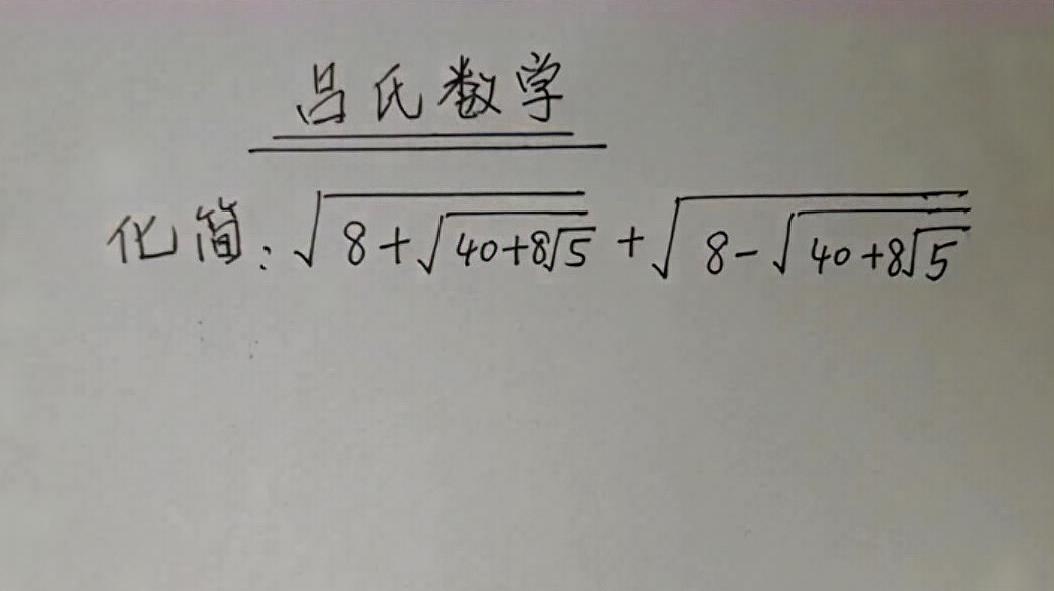 吕氏数学
化简:√(8+√(40+8√5))+√(8-√(40+8√5))